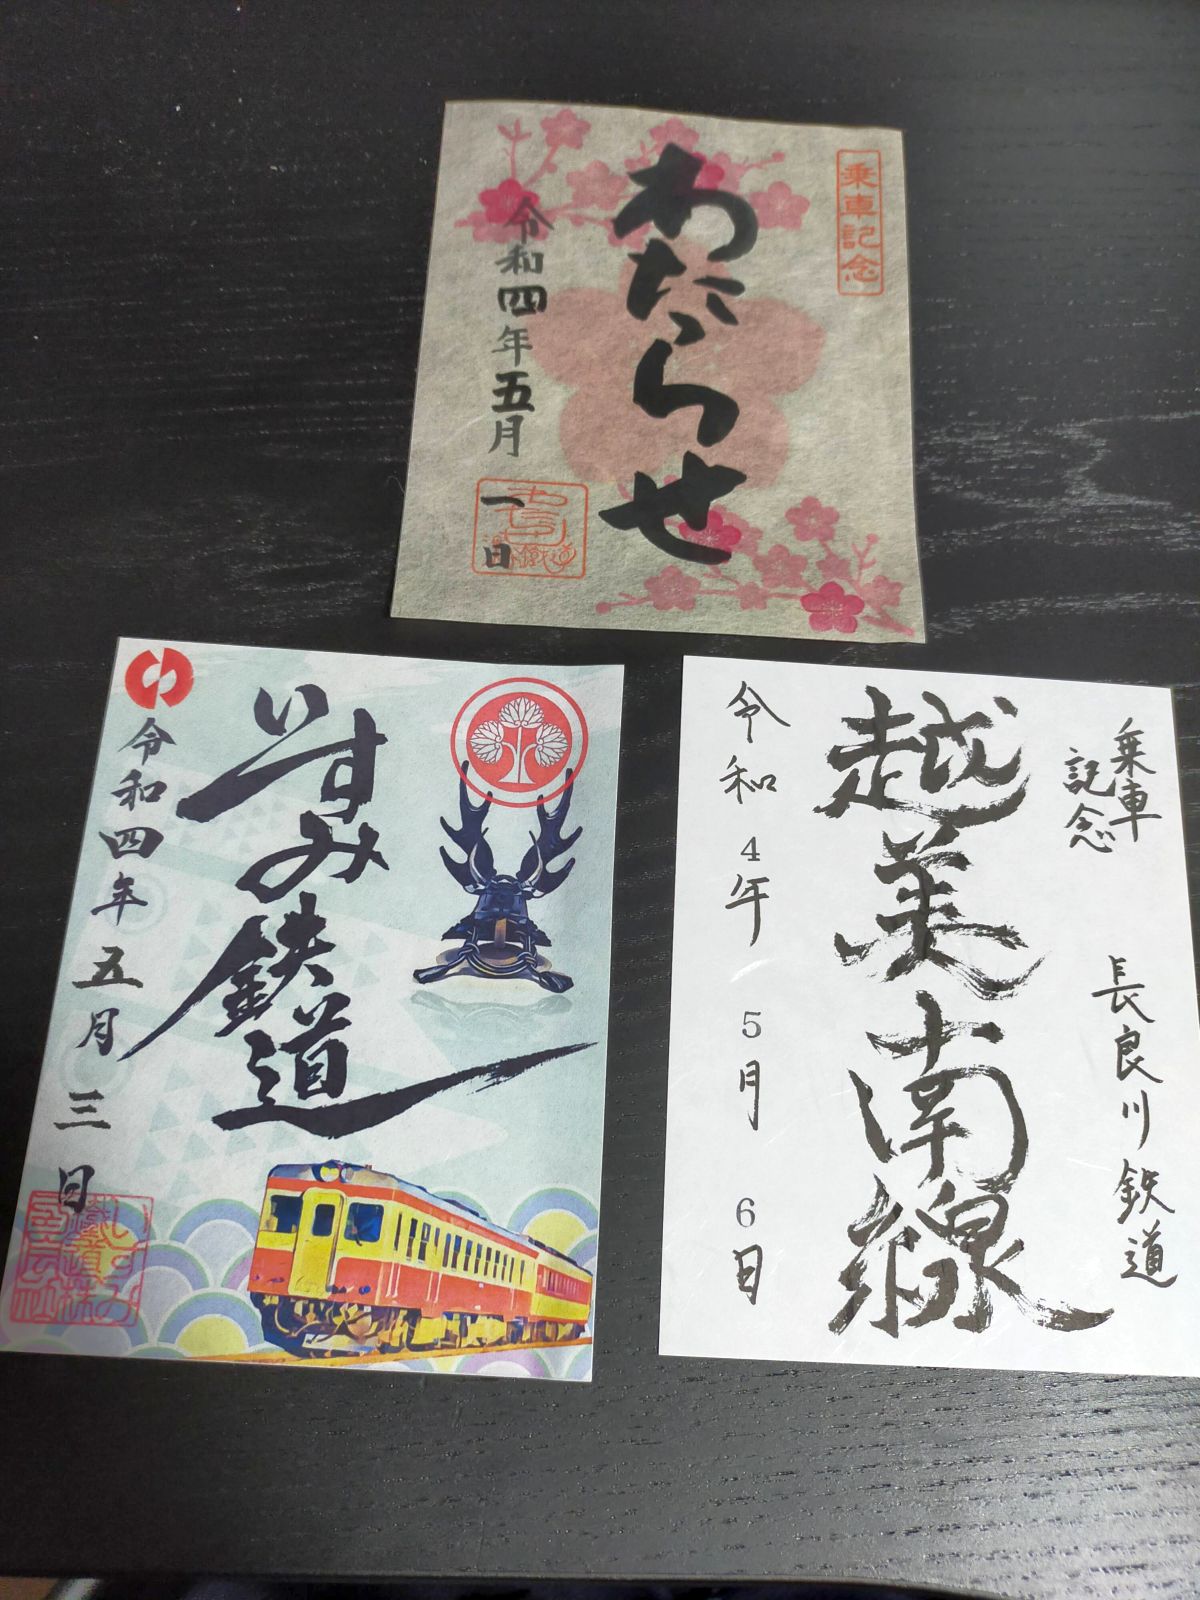 乗車記念
わたらせ
令和四年五月一日
いすみ鉄道
令和四年五月三日
いすみ鐵道株式会社
乗車記念
長良川鉄道
越美南線
令和4年5月6日